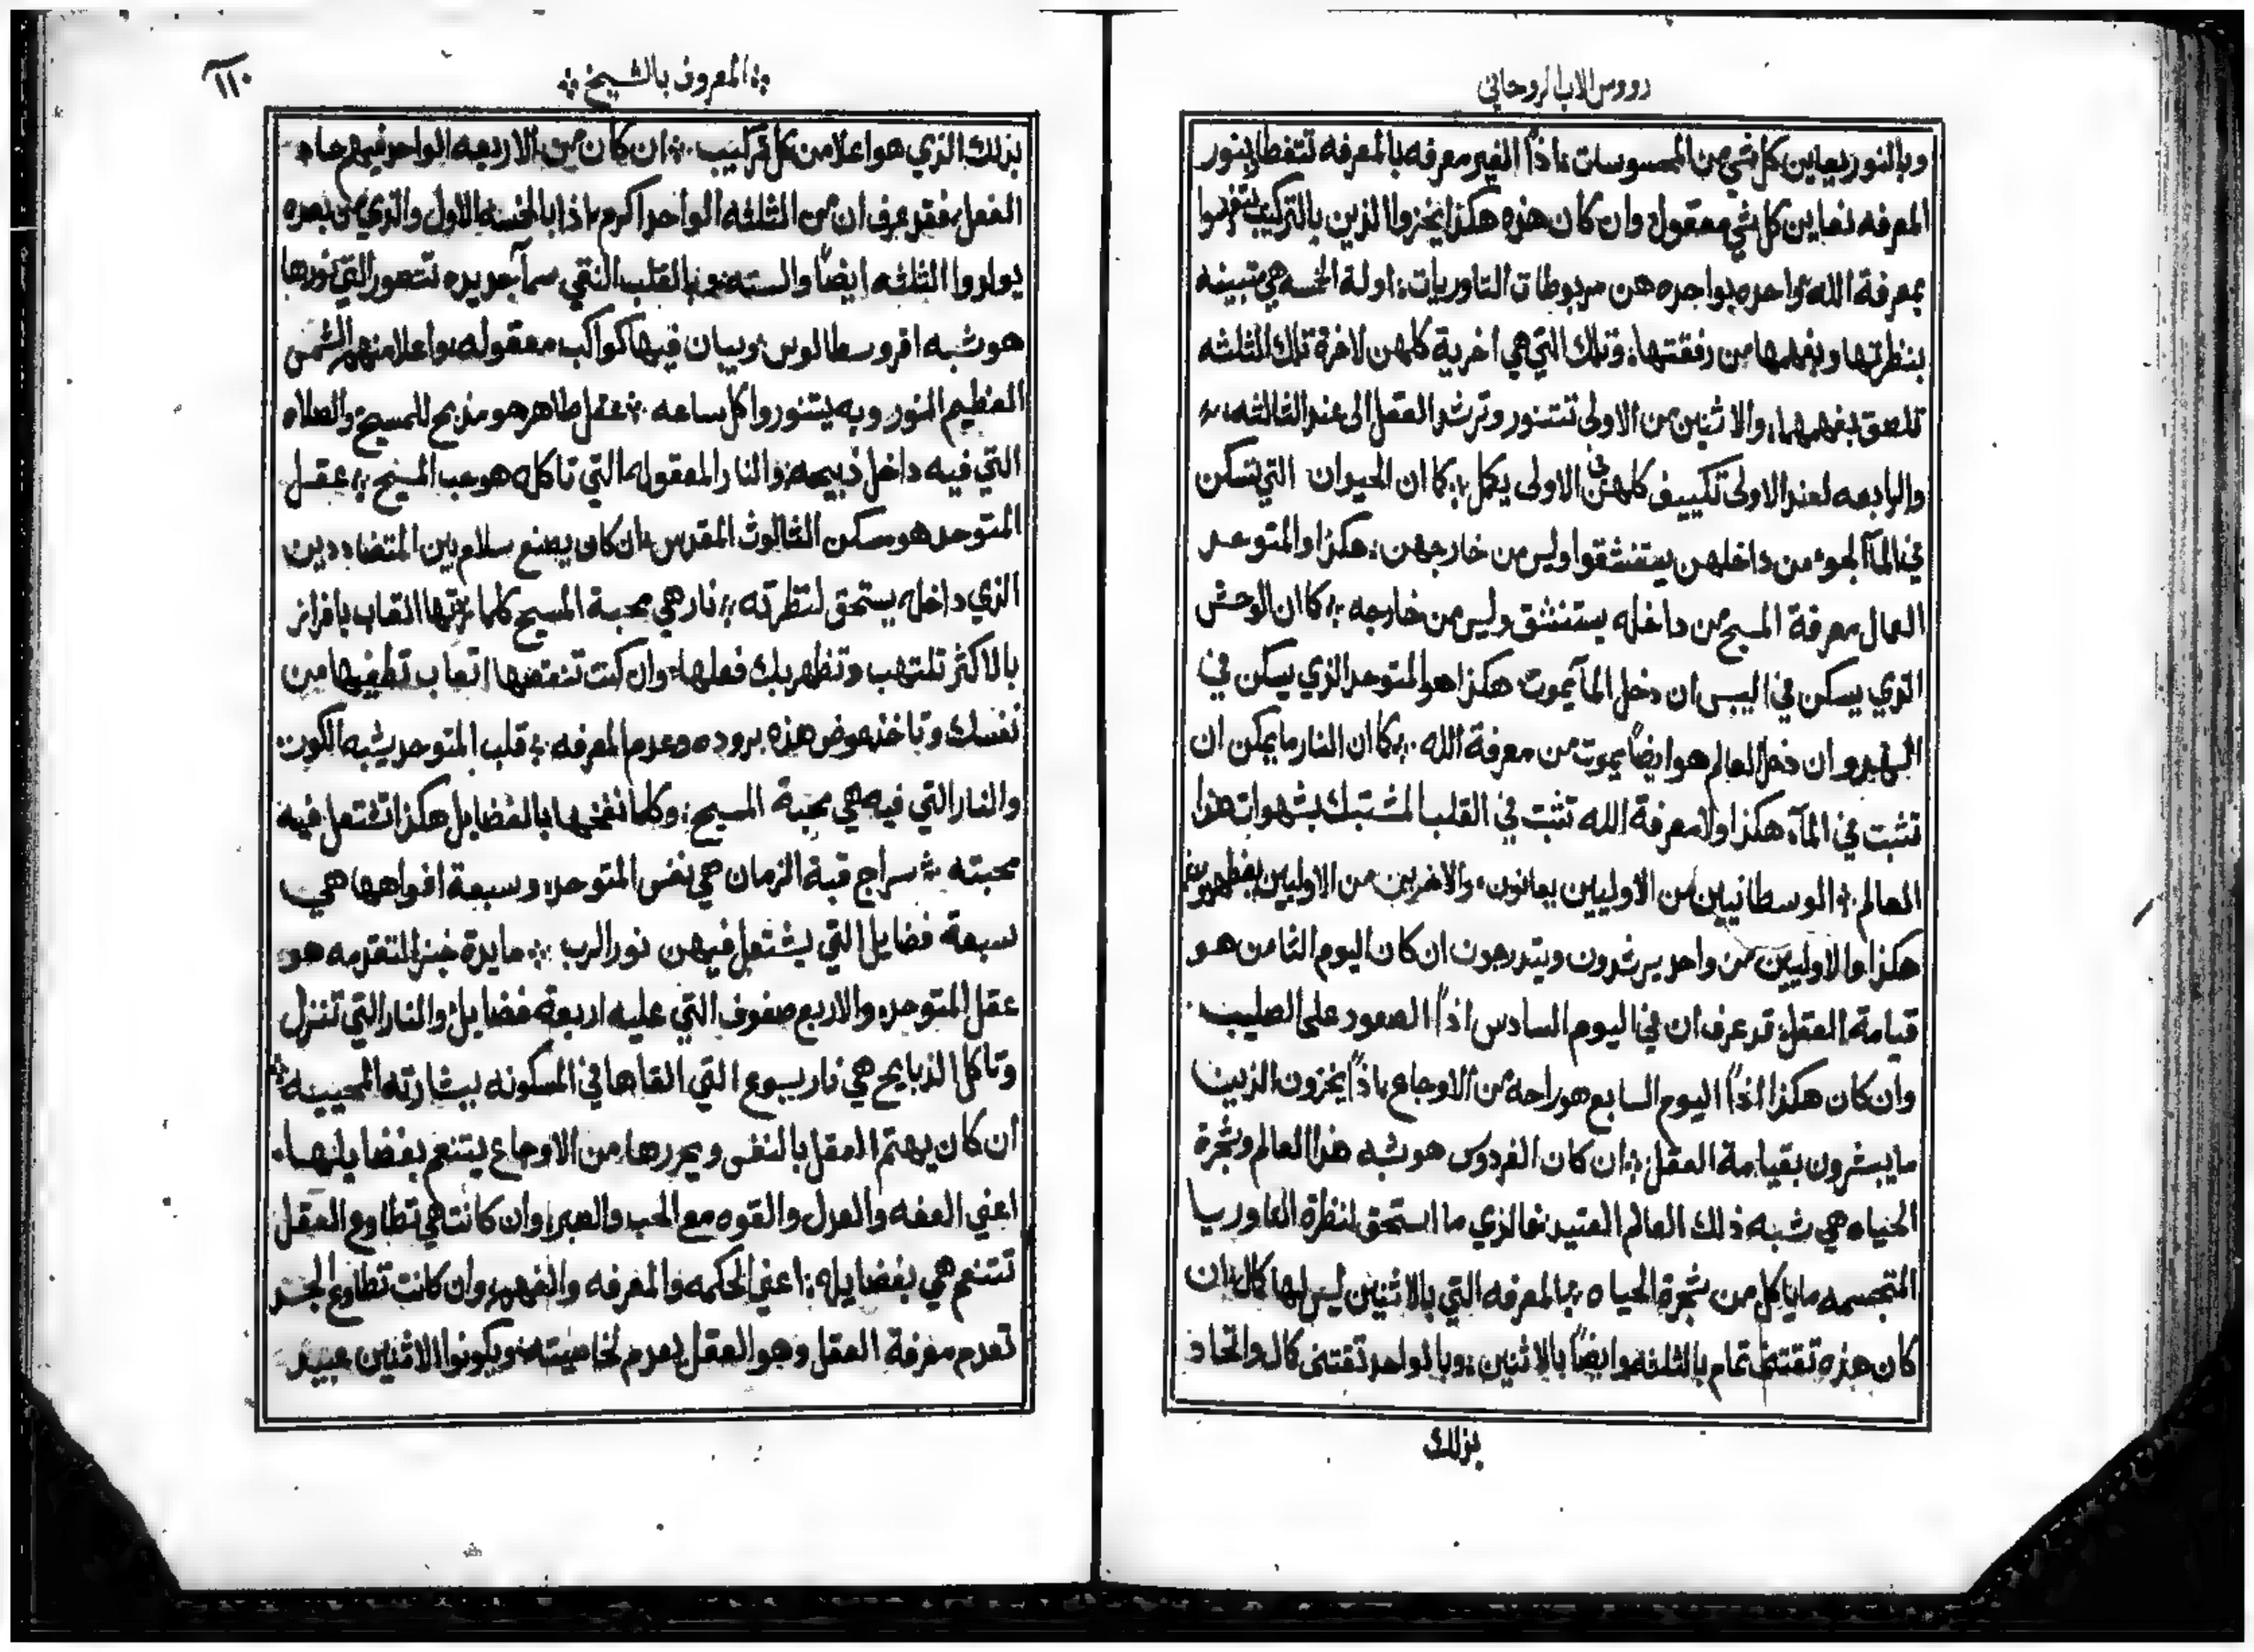 رووس الاب الروحاني
وبالنور يعاين كل شي من المحسوسات، اذاً الغير معرفه بالمعرفه تتغطا بنور
المعرفه نعاين كل شي معقول وان كان هذه هكذا يخزوا الذين بالتركيب يتفرسوا
بمعرفة الله واحده بواحده هن مربوطات التاوريات: اولة الخمسه هي تبينه
بنظرتها وبفهمها من رفقتها: وتلك التي هي اخرية كلهن لاخرة تلك الثلثه
تلصق بفهمها، والاثنين من الاولى تتنور وترشد العقل الى عند الثالثه،
والرابعه لعند الاولى تكييف كلهن في الاولى يكمل ⁘ كما ان الحيوان التي تسكن
في الما الجوء من داخلهن يستنشقوا وليس من خارجهن: هكذا والمتوحد
العمال معرفة المسيح من داخله يستنشق وليس من خارجه ⁘ كما ان الوحش
الذي يسكن في اليبس ان دخل الما يموت هكذا هو المتوحد الذي يسكن في
الهدو ان دخل العالم هو ايضاً يموت من معرفة الله ⁘ كما ان النار ما يمكن ان
تثبت في الما، هكذا ولا معرفة الله تثبت في القلب المشتبك بشهوات هذا
العالم ⁘ الوسطانيين من الاوليين يعانون، والاخريين من الاوليين
هكذا والاوليين من واحد يرشدون ويتدرجون ان كان اليوم الثامن هو
قيامة العقل: قد عرف ان في اليوم السادس اذاً الصعود على الصليب
وان كان هكذا اذاً اليوم السابع هو راحة من الاوجاع، اذاً يخزون الذين
ما يبشرون بقيامة العقل ⁘ ان كان الفردوس هو شبه هذا العالم وشجرة
الحياه هي شبه ذلك العالم العتيد فالذي ما استحق لنظرة التاوريا
المتجسمه ما ياكل من شجرة الحياه ⁘ المعرفه التي بالاثنين ليس لها كمال ان
كان هذه تقتضا تمام بالثلثه وايضاً بالاثنين: وبالواحد تقتنى كمال واتحاد
بذلك
⁘ المعروف بالشيخ ⁘
١١٠
بذلك الذي هو اعلا من كل تركيب ⁘ ان كان من الاربعه الواحد فيهم حاد
الفعل، فقد عرف ان من الثلثه الواحد اكرم، اذا بالخمسه الاول والذي من بعده
يولدوا الثلثه ايضاً والسته: وبالقلب النقي سماً جديده تتصور التي نورها
هو شبه اقروسطالوس: ويبان فيها كواكب معقوله، واعلا منهم الشمس
العظيم النور وبه يتنوروا كل ساعه ⁘ عقل طاهر هو مذبح للمسيح والصلاه
التي فيه داخل ذبيحه: والنار المعقوله التي تاكله هو حب المسيح ⁘ عقل
المتوحد هو مسكن الثالوث المقدس، ان كان يصنع سلام بين المتضاددين
الذي داخله يستحق لنظرته ⁘ نار هي محبة المسيح كلما اتعاب بافراز
بالاكثر تلتهب وتظهر بك فعلها: وان كنت تنقصها اتعاب تطفيها من
نفسك وتاخذ عوض هذه بروده وعدم المعرفه ⁘ قلب المتوحد يشبه الكور
والنار التي فيه هي محبة المسيح: وكلما نفختها بالفضايل هكذا تشتعل فيه
محبته ⁘ سراج قبة الزمان هي نفس المتوحد: وسبعة افواهها هي
سبعة فضايل التي يشتعل فيهن نور الرب ⁘ مايدة خبز المتقدمه هو
عقل المتوحد، والاربع صفوف التي عليه اربعة فضايل: والنار التي تنزل
وتاكل الذبايح هي نار يسوع التي القاها في المسكونه ببشارته المحييه ⁘
ان كان يهتم العقل بالنفس ويحررها من الاوجاع يتنعم بفضايلها.
اعني العفه والعدل والقوه مع الحب والصبر: وان كانت هي تطاوع العقل
تتنعم هي بفضايله: اعني الحكمه والمعرفه والفهم: وان كانت تطاوع الجسد
تعدم معرفة العقل وهو العقل يعدم لخاصيته: ويكونوا الاثنين عبيد